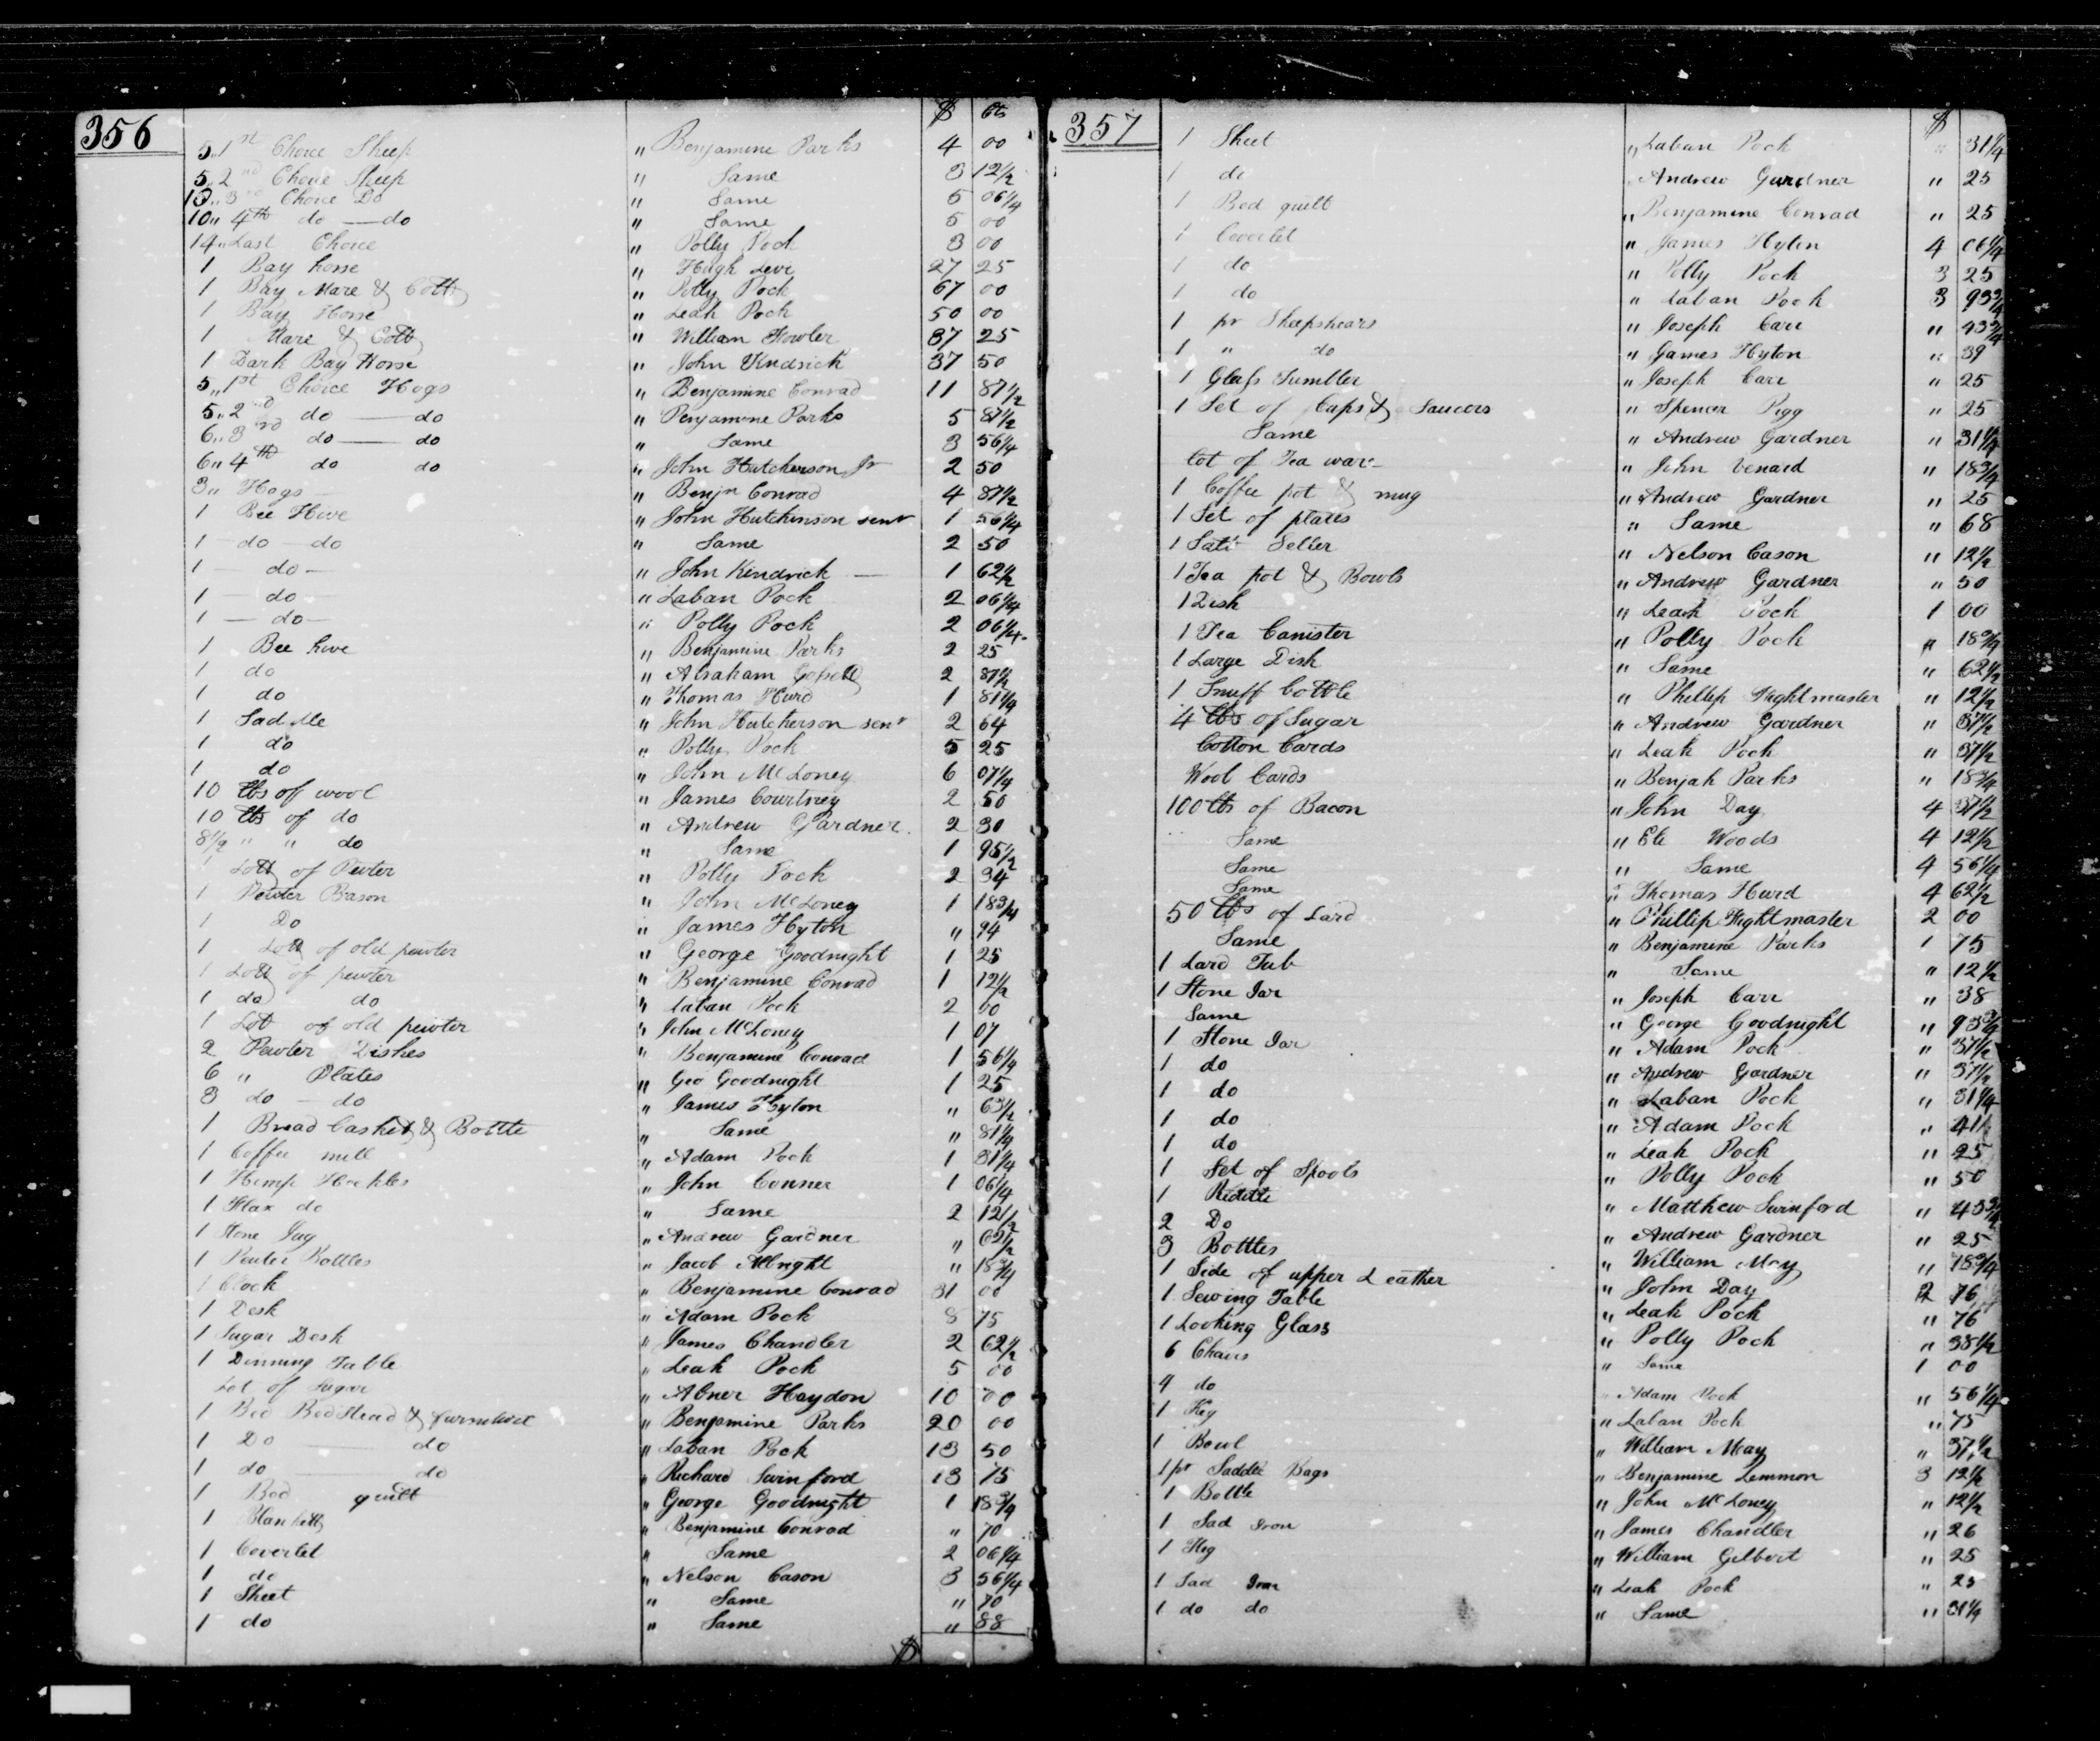 356
$ cts
5,, 1st Choice Sheep " Benjamine Parks 4 00
5,, 2nd Choice Sheep " Same 3 12½
13,, 3rd Choice Do " Same 5 06¼
10,, 4th do — do " Same 5 00
14,, Last Choice " Polly Pock 3 00
1 Bay horse " Hugh Levi 27 25
1 Bay Mare & Colt " Polly Pock 67 00
1 Bay Horse " Leah Pock 50 00
1 Mare & Colt " William Fowler 37 25
1 Dark Bay Horse " John Kndrick 37 50
5,, 1st Choice Hogs " Benjamine Conrad 11 87½
5,, 2nd do — do " Benjamine Parks 5 87½
6,, 3rd do — do " Same 3 56¼
6,, 4th do do " John Hutcherson Jr 2 50
3,, Hogs " Benjn Conrad 4 87½
1 Bee Hive " John Hutchinson senr 1 56¼
1 do do " Same 2 50
1 — do — " John Kendrick — 1 62½
1 — do — " Laban Pock 2 06¼
1 — do — " Polly Pock 2 06¼
1 Bee hive " Benjamine Parks 2 25
1 do " Abraham 2 87½
1 do " Thomas Hurd 1 81¼
1 Saddle " John Hutcherson senr 2 64
1 do " Polly Pock 5 25
1 do " John McLoney 6 07¼
10 lbs of wool " James Courtney 2 50
10 lbs of do " Andrew Gardner 2 30
8½ " " do " Same 1 95½
1 Lott of Pewter " Polly Pock 2 34
1 Pewter Bason " John McLoney 1 18¾
1 Do " James Hyton " 94
1 Lott of old pewter " George Goodnight 1 25
1 Lott of pewter " Benjamine Conrad 1 12½
1 do do " Laban Pock 2 00
1 Lot of old pewter " John McLoney 1 07
2 Pewter Dishes " Benjamine Conrad 1 56¼
6 " Plates " Geo Goodnight 1 25
3 do — do " James Hyton " 63½
1 Bread Casket & Bottle " Same " 81¼
1 Coffee mill " Adam Pock 1 31¼
1 Hemp Hackles " John Conner 1 06¼
1 Flax do " Same 2 12½
1 Stone Jug " Andrew Gardner " 62½
1 Pewter Bottles " Jacob Albright " 18¾
1 Clock " Benjamine Conrad 31 00
1 Desk " Adam Pock 8 75
1 Sugar Desk " James Chandler 2 62½
1 Dinning Table " Leah Pock 5 00
Lot of Sugar " Abner Haydon 10 00
1 Bed Bedstead & furniture " Benjamine Parks 20 00
1 Do — do " Laban Pock 13 50
1 do — do " Richard Swinford 13 75
1 Bed quilt " George Goodnight 1 18¾
1 Blankett " Benjamine Conrad " 70
1 Coverlet " Same 2 06¼
1 do " Nelson Cason 3 56¼
1 Sheet " Same " 70
1 do " Same " 88
$
357
$
1 Sheet " Laban Pock " 31¼
1 do " Andrew Gardner " 25
1 Bed quilt " Benjamine Conrad " 25
1 Coverlet " James Hyton 4 06¼
1 do " Polly Pock 3 25
1 do " Laban Pock 3 93¾
1 pr Sheepshears " Joseph Carr " 43¾
1 " do " James Hyton " 39
1 Glass Tumbler " Joseph Carr " 25
1 Set of Cups & Saucers " Spencer Pigg " 25
Same " Andrew Gardner " 31¼
Lot of Tea ware " John Venard " 18¾
1 Coffee pot & mug " Andrew Gardner " 25
1 Set of plates " Same " 68
1 Salt Seller " Nelson Cason " 12½
1 Tea pot & Bowls " Andrew Gardner " 50
1 Dish " Leah Pock 1 00
1 Tea Canister " Polly Pock " 18¾
1 Large Dish " Same " 62½
1 Snuff bottle " Phillip Fightmaster " 12½
4 lbs of Sugar " Andrew Gardner " 37½
Cotton Cards " Leah Pock " 37½
Wool Cards " Benjah Parks " 18¾
100 lbs of Bacon " John Day 4 37½
Same " Eli Woods 4 12½
Same " Same 4 56¼
Same " Thomas Hurd 4 62½
50 lbs of Lard " Phillip Fightmaster 2 00
Same " Benjamine Parks 1 75
1 Lard Tub " Same " 12½
1 Stone Jar " Joseph Carr " 38
Same " George Goodnight " 93¾
1 Stone Jar " Adam Pock " 37½
1 do " Andrew Gardner " 37½
1 do " Laban Pock " 31¼
1 do " Adam Pock " 41½
1 do " Leah Pock " 25
1 Set of Spools " Polly Pock " 50
1 Riddle " Matthew Swinford " 43¾
2 Do " Andrew Gardner " 25
3 Bottles " William May " 18¾
1 Side of upper Leather " John Day 2 76
1 Sewing Table " Leah Pock " 76
1 Looking Glass " Polly Pock " 38½
6 Chairs " Same 1 00
4 do " Adam Pock " 56¼
1 Keg " Laban Pock " 75
1 Bowl " William May " 37½
1 pr Saddle Bags " Benjamine Lemmon 3 12½
1 Bottle " John McLoney " 12½
1 Sad Iron " James Chandler " 26
1 Keg " William Gilbert " 25
1 Sad Iron " Leah Pock " 25
1 do do " Same " 31¼